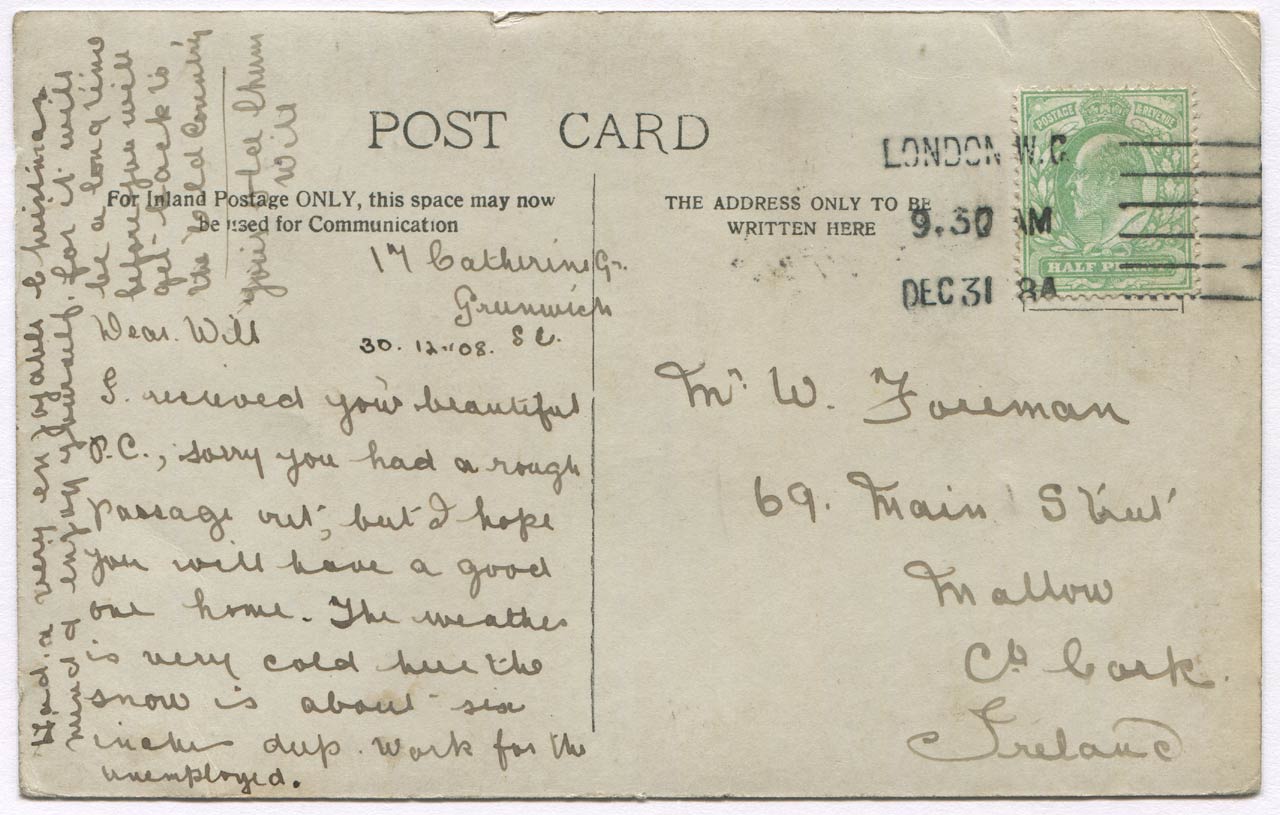 POST CARD
For Inland Postage ONLY, this space may now
be used for Communication
THE ADDRESS ONLY TO BE
WRITTEN HERE
LONDON W.C
9.30 AM
DEC 31 8A
POSTAGE & REVENUE
HALF PENNY
17 Catherine Gr.
Grunwich
S E.
30. 12. 08.
Dear. Will
I. recieved your beautiful
P.C., sorry you had a rough
passage out, but I hope
you will have a good
one home. The weather
is very cold here the
snow is about six
inches deep. Work for the
unemployed.
Had. a very enjoyable Christmas
mind enjoy yourself. for it will
be a long time
before you will
get back to
the Old Country
your old Chum
Will
Mr W. Foreman
69. Main Street
Mallow
Co Cork.
Ireland